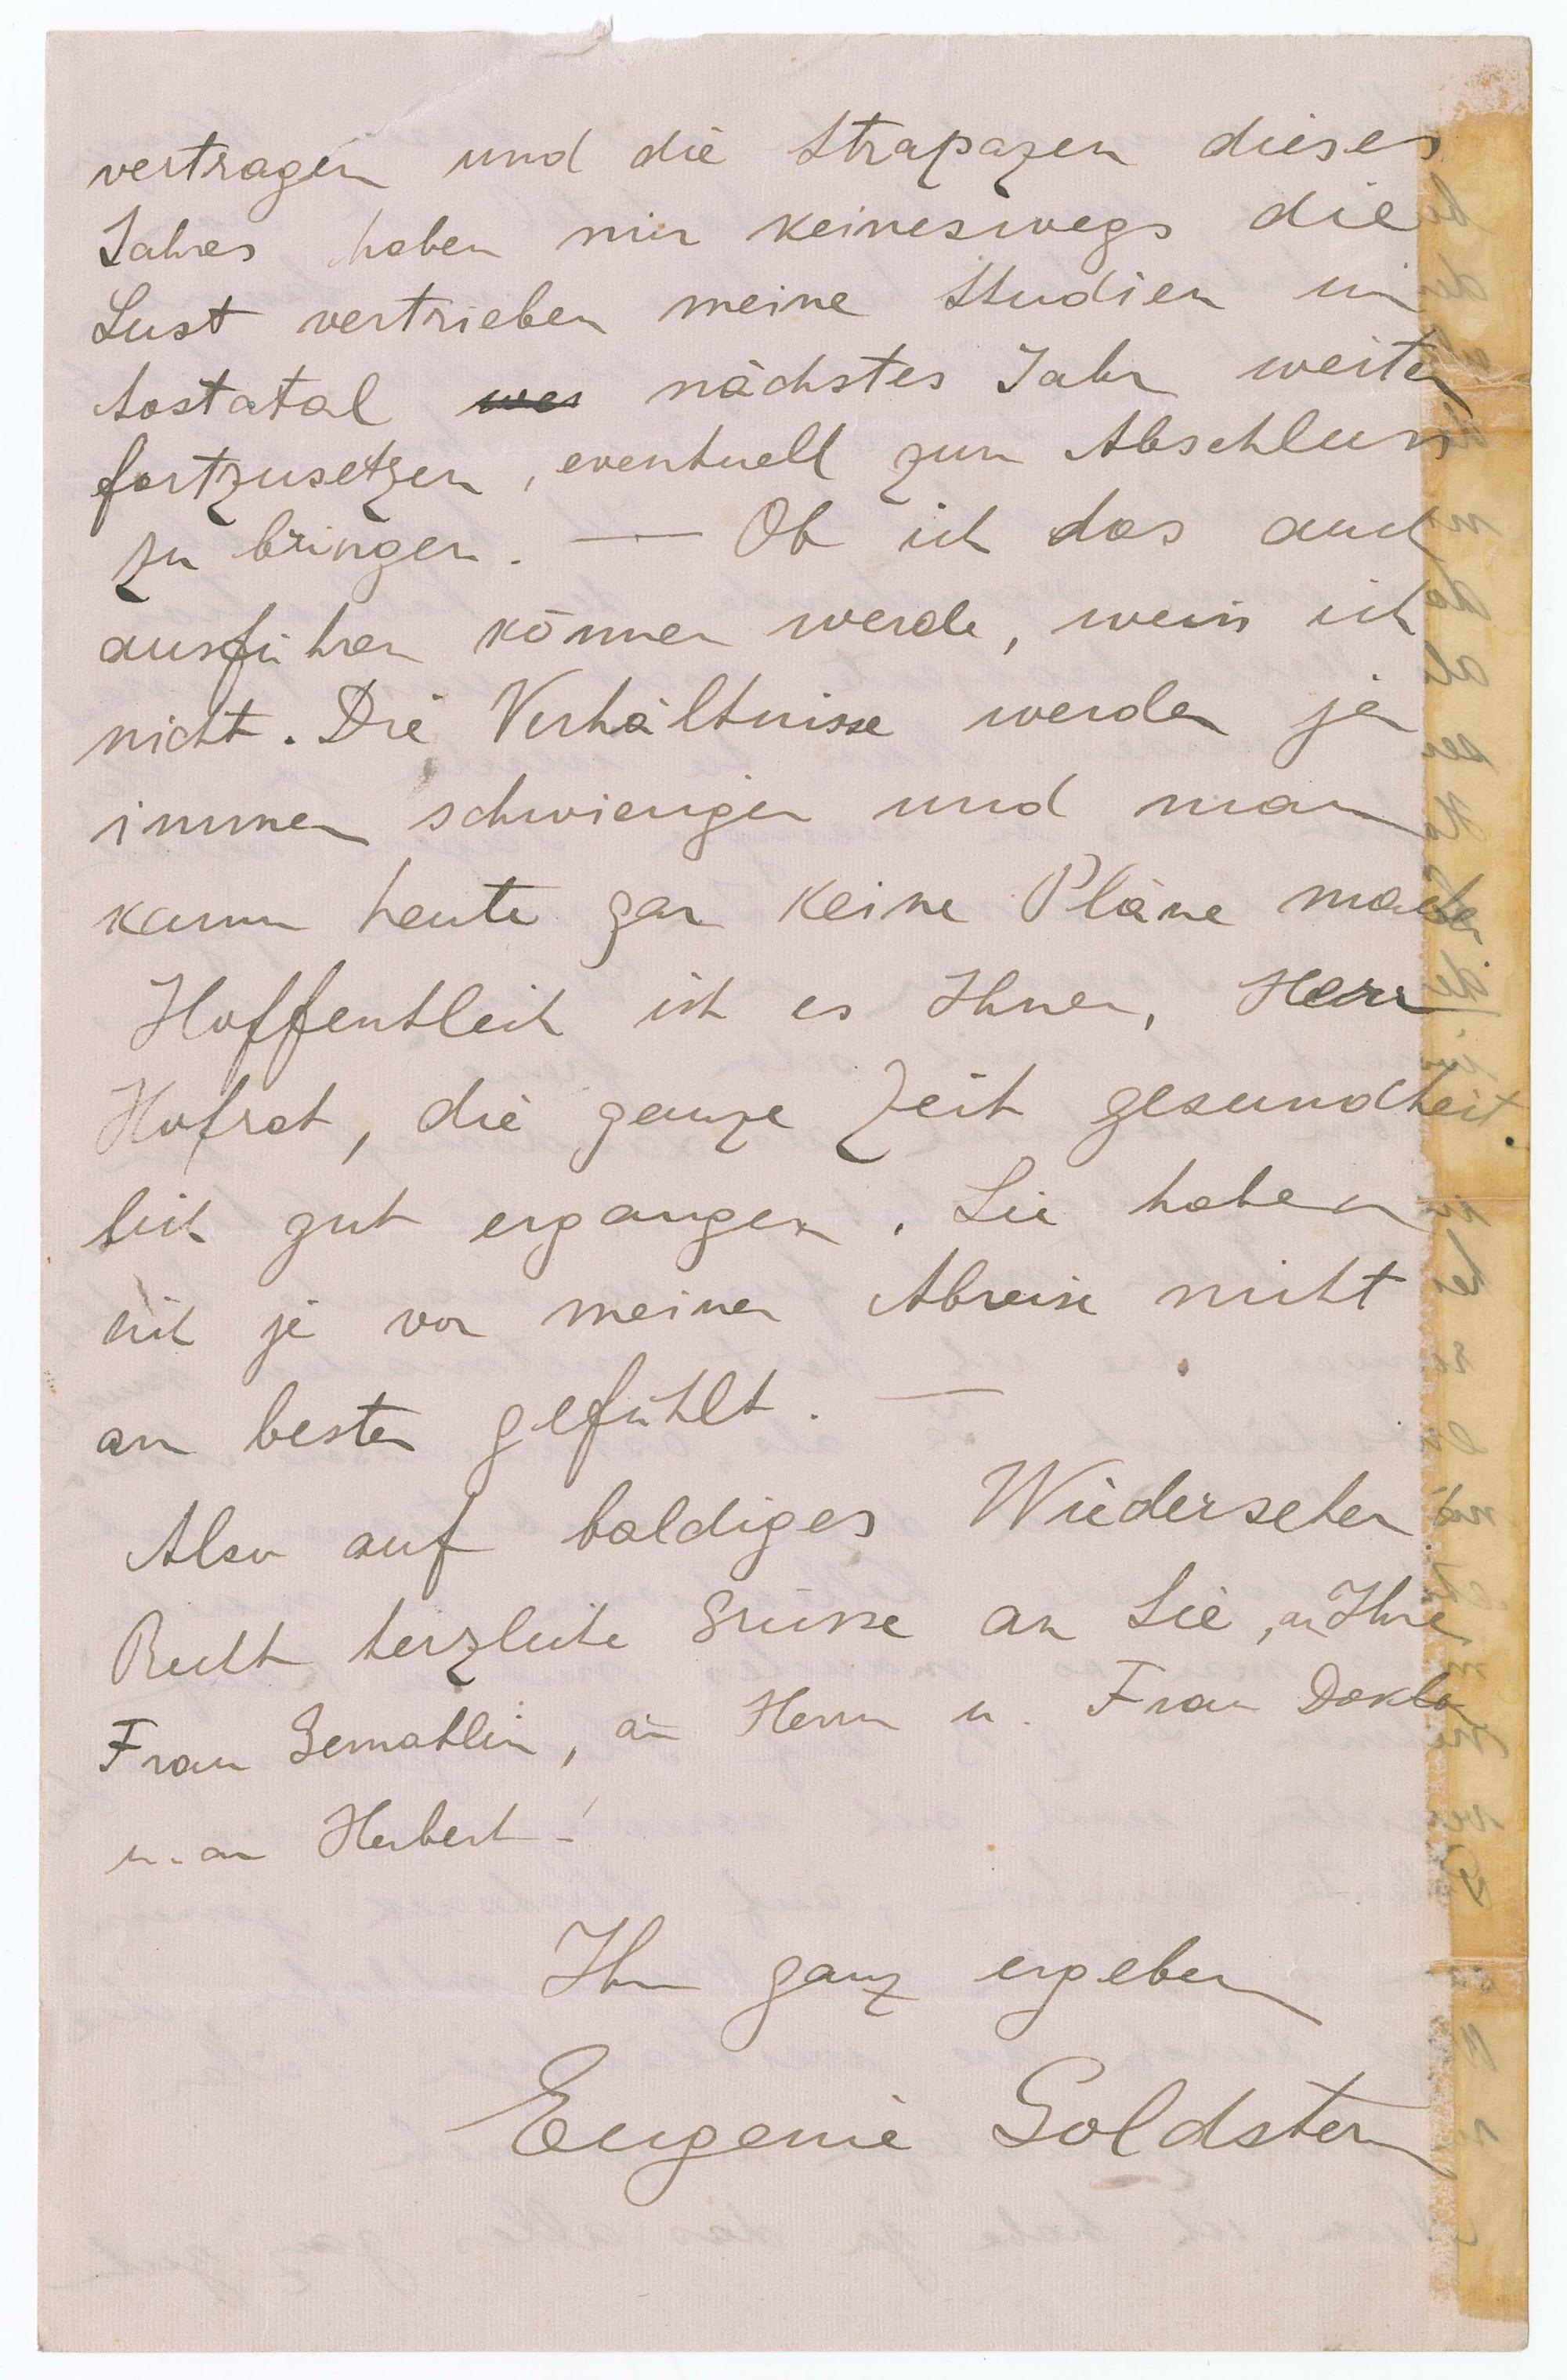 vertragen und die Strapazen dieses
Jahres haben mir keineswegs die
Lust vertrieben meine Studien im
Aostatal nächstes Jahr weiter
fortzusetzen, eventuell zum Abschluss
zu bringen. — Ob ich das auch
ausführen können werde, weiss ich
nicht. Die Verhältnisse werden ja
immer schwieriger und man
kann heute gar keine Pläne machen
Hoffentlich ist es Ihnen, Herr
Hofrat, die ganze Zeit gesundheit
lich gut ergangen. Sie haben
sich ja vor meiner Abreise nicht
am besten gefühlt. —
Also auf baldiges Wiedersehen
Recht herzliche Grüsse an Sie, an Ihre
Frau Gemahlin, an Herrn u. Frau Doktor
u. an Herbert!
Ihre ganz ergeben
Eugenie Goldstern